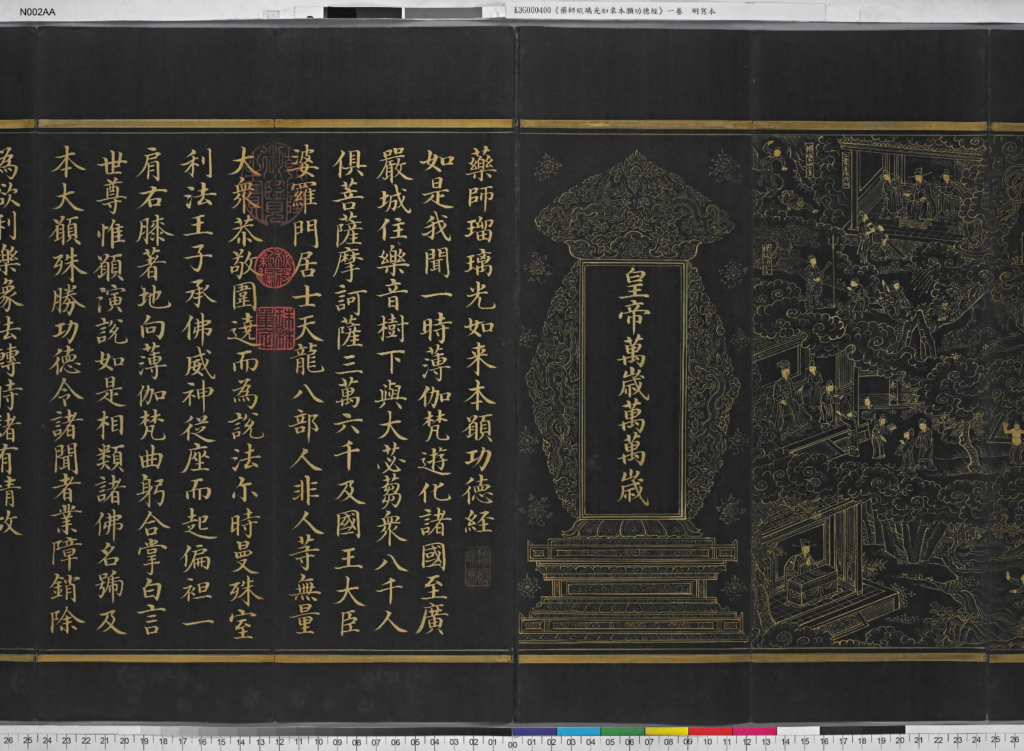 N002AA
K3G000400《藥師琉璃光如来本願功德經》一卷 明寫本
皇帝萬歲萬萬歲
藥師瑠璃光如来本願功德経
如是我聞一時薄伽梵遊化諸國至廣
嚴城住樂音樹下與大苾蒭衆八千人
俱菩薩摩訶薩三萬六千及國王大臣
婆羅門居士天龍八部人非人等無量
大衆恭敬圍遶而為說法尒時曼殊室
利法王子承佛威神從座而起偏袒一
肩右膝著地向薄伽梵曲躬合掌白言
世尊惟願演說如是相類諸佛名號及
本大願殊勝功德令諸聞者業障銷除
為欲利樂像法轉時諸有情故
26 25 24 23 22 21 20 19 18 17 16 15 14 13 12 11 10 09 08 07 06 05 04 03 02 01 00 01 02 03 04 05 06 07 08 09 10 11 12 13 14 15 16 17 18 19 20 21 22 23 24 25 26